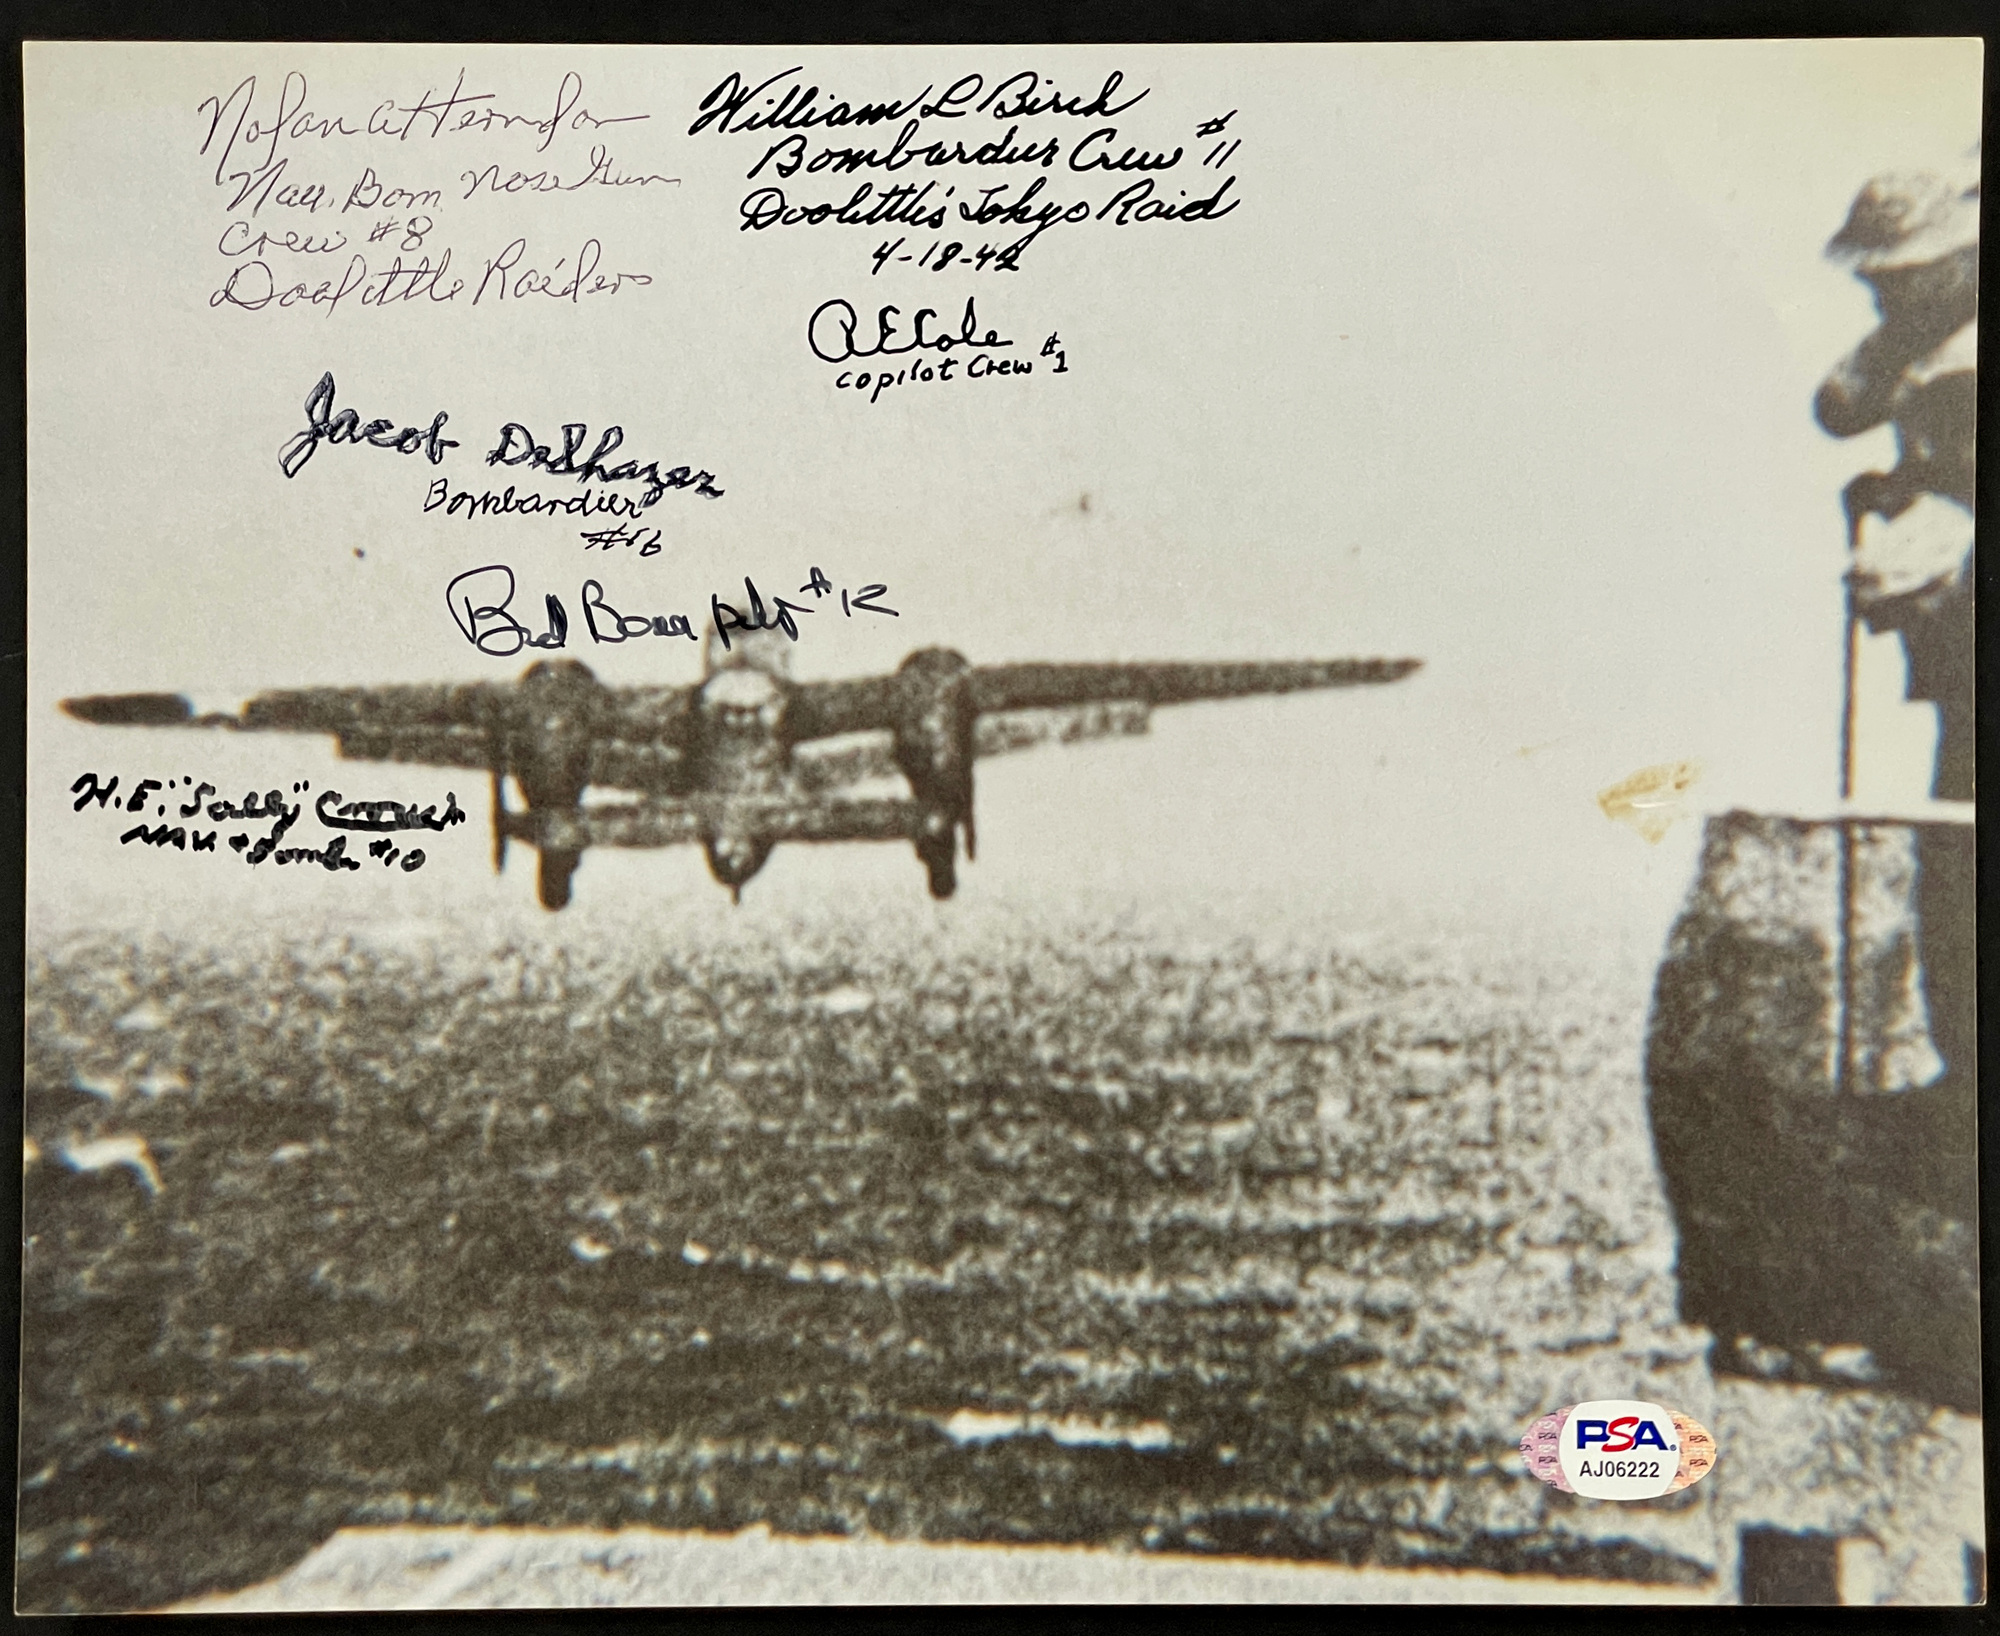 Nolan A Herndon
Nav. Bom Nose Gun
Crew #8
Doolittle Raiders
William L Birch
Bombardier Crew #11
Doolittle's Tokyo Raid
4-18-42
R E Cole
copilot Crew #1
Jacob DeShazer
Bombardier
#16
Bill Bower pilot #12
H.E. "Sally" Crouch
NAV + Bomb. #10
PSA
AJ06222